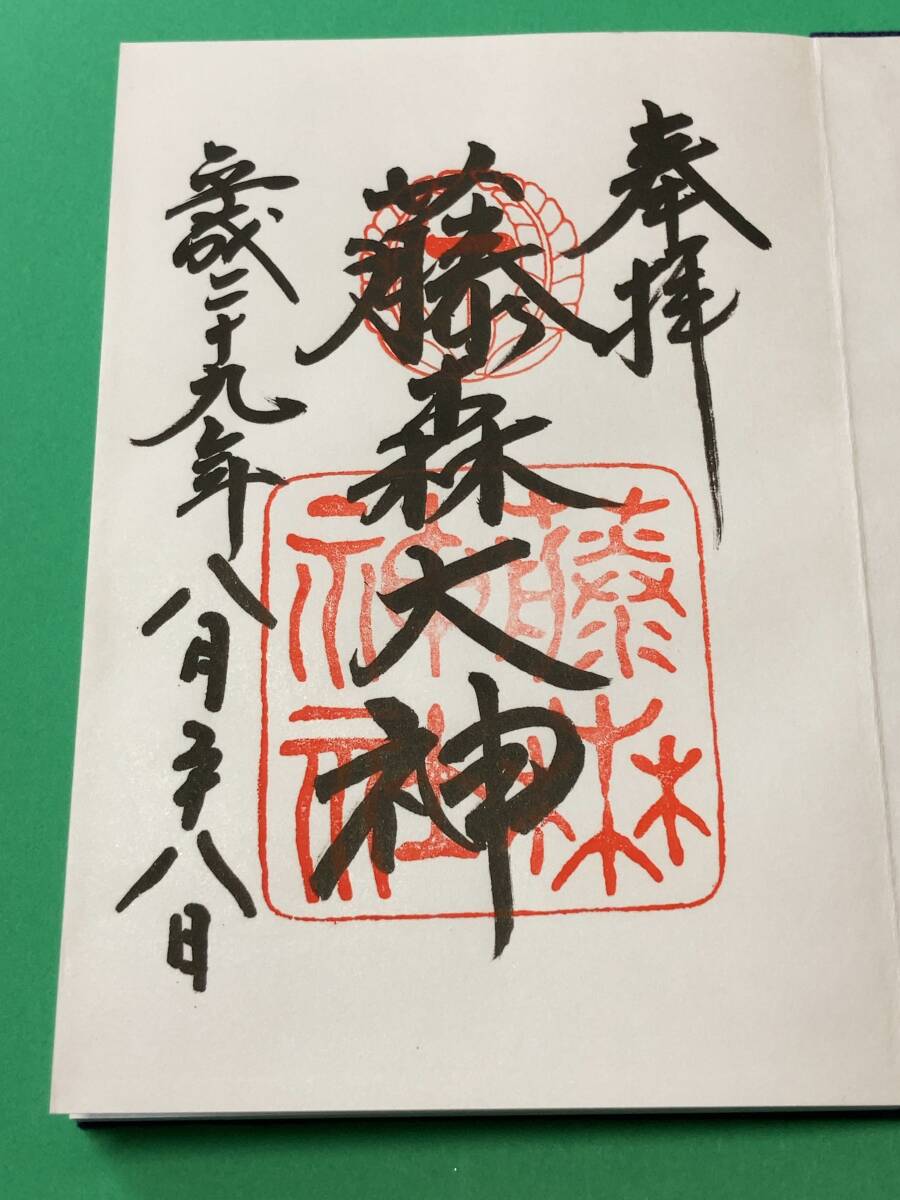 奉拝
藤森大神
平成二十九年八月二十八日
藤森
神社